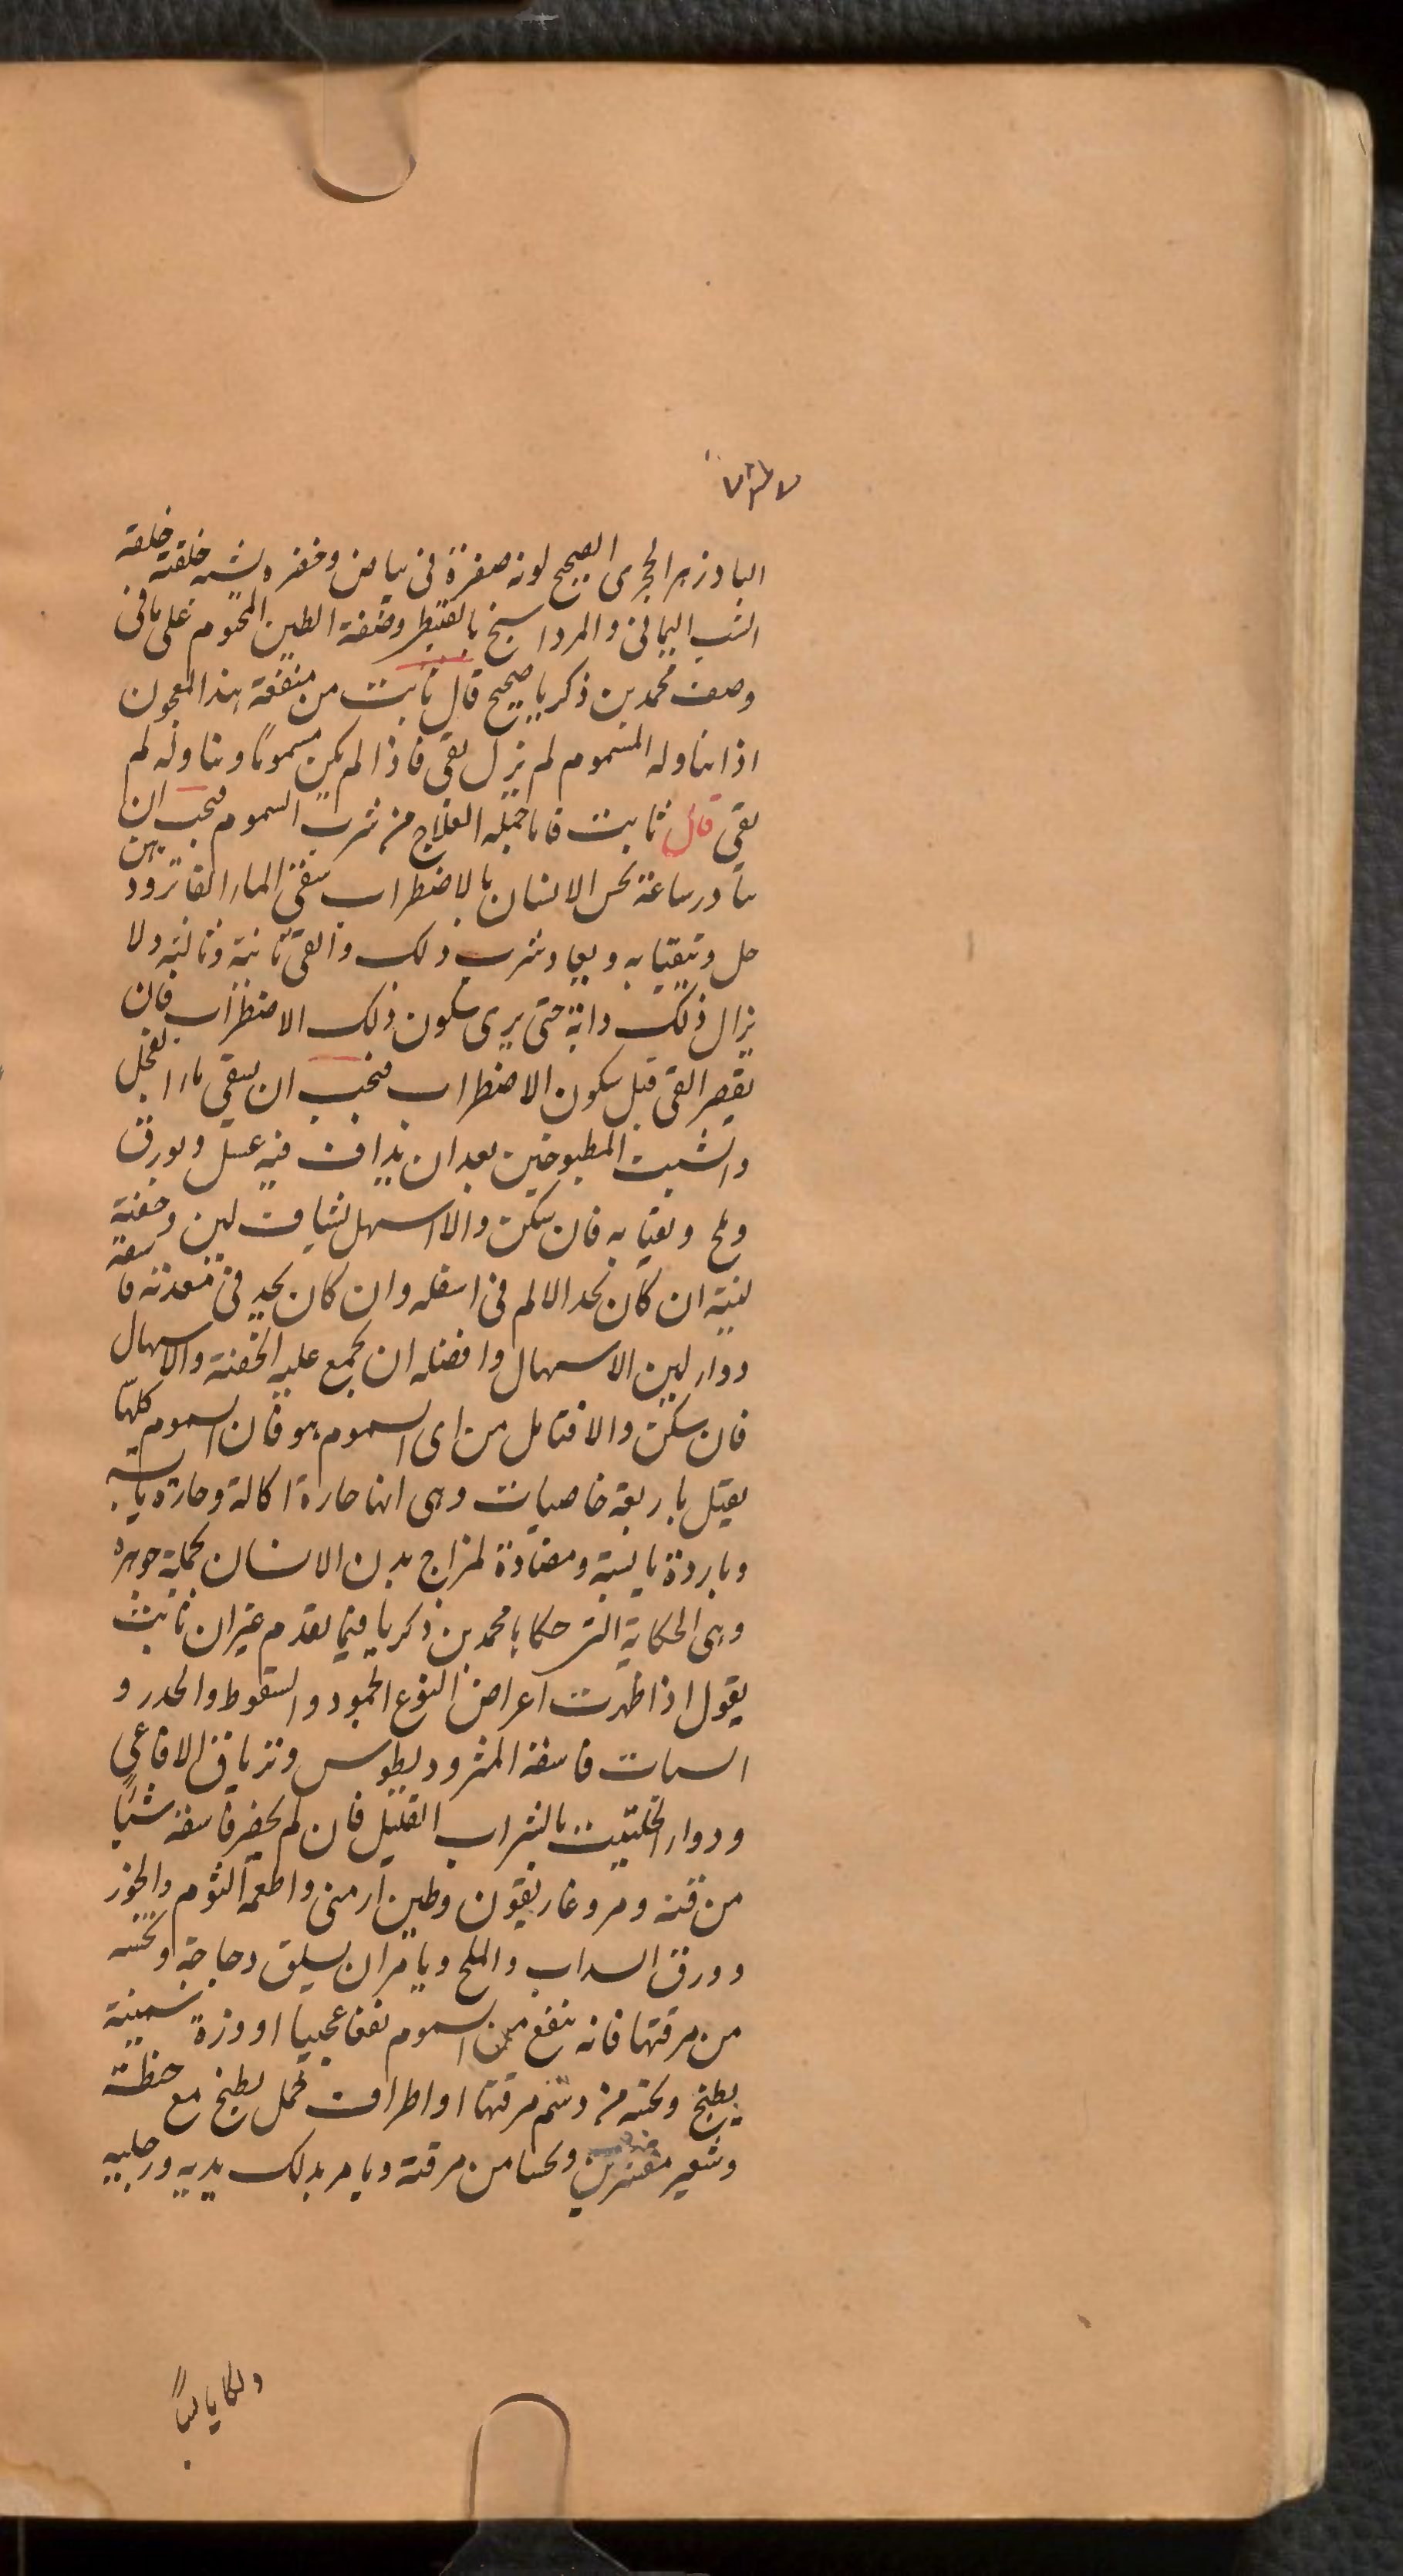 البادزهر الحجرى الصحيح لونه صفرة فى بياض وخضره يشبه خلقته خلقة
الشب اليمانى والمرداسنج بالقنطر وصفة الطين المختوم على ما فى
وصف محمد بن ذكريا صحيح قال ثابت من منفعة هذا المعجون
اذا تناوله المسموم لم يزل يقى فاذا لم يكن مسموما وتناوله لم
يقى قال ثابت فاما جملة العلاج من شرب السموم فيجب ان
يبادر ساعة يحس الانسان بالاضطراب بسقى الماء الفاتر ودهن
حل وتيقيا به ويعاد شرب ذلك والقى ثانية وثالثه ولا
يزال ذلك دابه حتى يرى سكون ذلك الاضطراب فان
يقصر القى قبل سكون الاضطراب فيجب ان يسقى ماء الفجل
والشبت المطبوخين بعد ان يداف فيه عسل وبورق
وملح ويقيا به فان سكن والا اسهل بشياف لين وحقنة
لينة ان كان يجد الالم فى اسفله وان كان يجد فى معدته فاسقه
دواء لين الاسهال وافضله ان يجمع عليه الحقنة والاسهال
فان سكن والا فتامل من اى السموم هو فان السموم كلها
يقتل باربعة خاصيات وهى انها حارة اكالة وحارة يابسه
وباردة يابسة ومضادة لمزاج بدن الانسان بجملة جوهره
وهى الحكاية التى حكاها محمد بن ذكريا فيما تقدم غير ان ثابت
يقول اذا ظهرت اعراض النوع الجمود والسقوط والخدر و
السبات فاسقه المثروديطوس وترياق الافاعى
ودواء الحلتيت بالشراب القليل فان لم يحضر فاسقه شيئا
من قنه ومر وغاريقون وطين ارمنى واطعمه الثوم والجوز
وورق السداب والملح ويامر ان يسلق دجاجة وتحسه
من مرقتها فانه ينفع من السموم نفعا عجيبا او وزة سمينة
يطبخ وتحسه من دسم مرقتها او اطراف حمل يطبخ مع حنطة
وشعير مقشرين وتحسا من مرقته ويامر بدلك يديه ورجليه